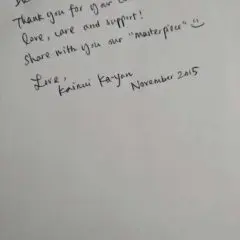 Thank you for your
love, care and support!
Share with you our "masterpiece" ☺
Love,
Kainui Ka-yan
November 2015